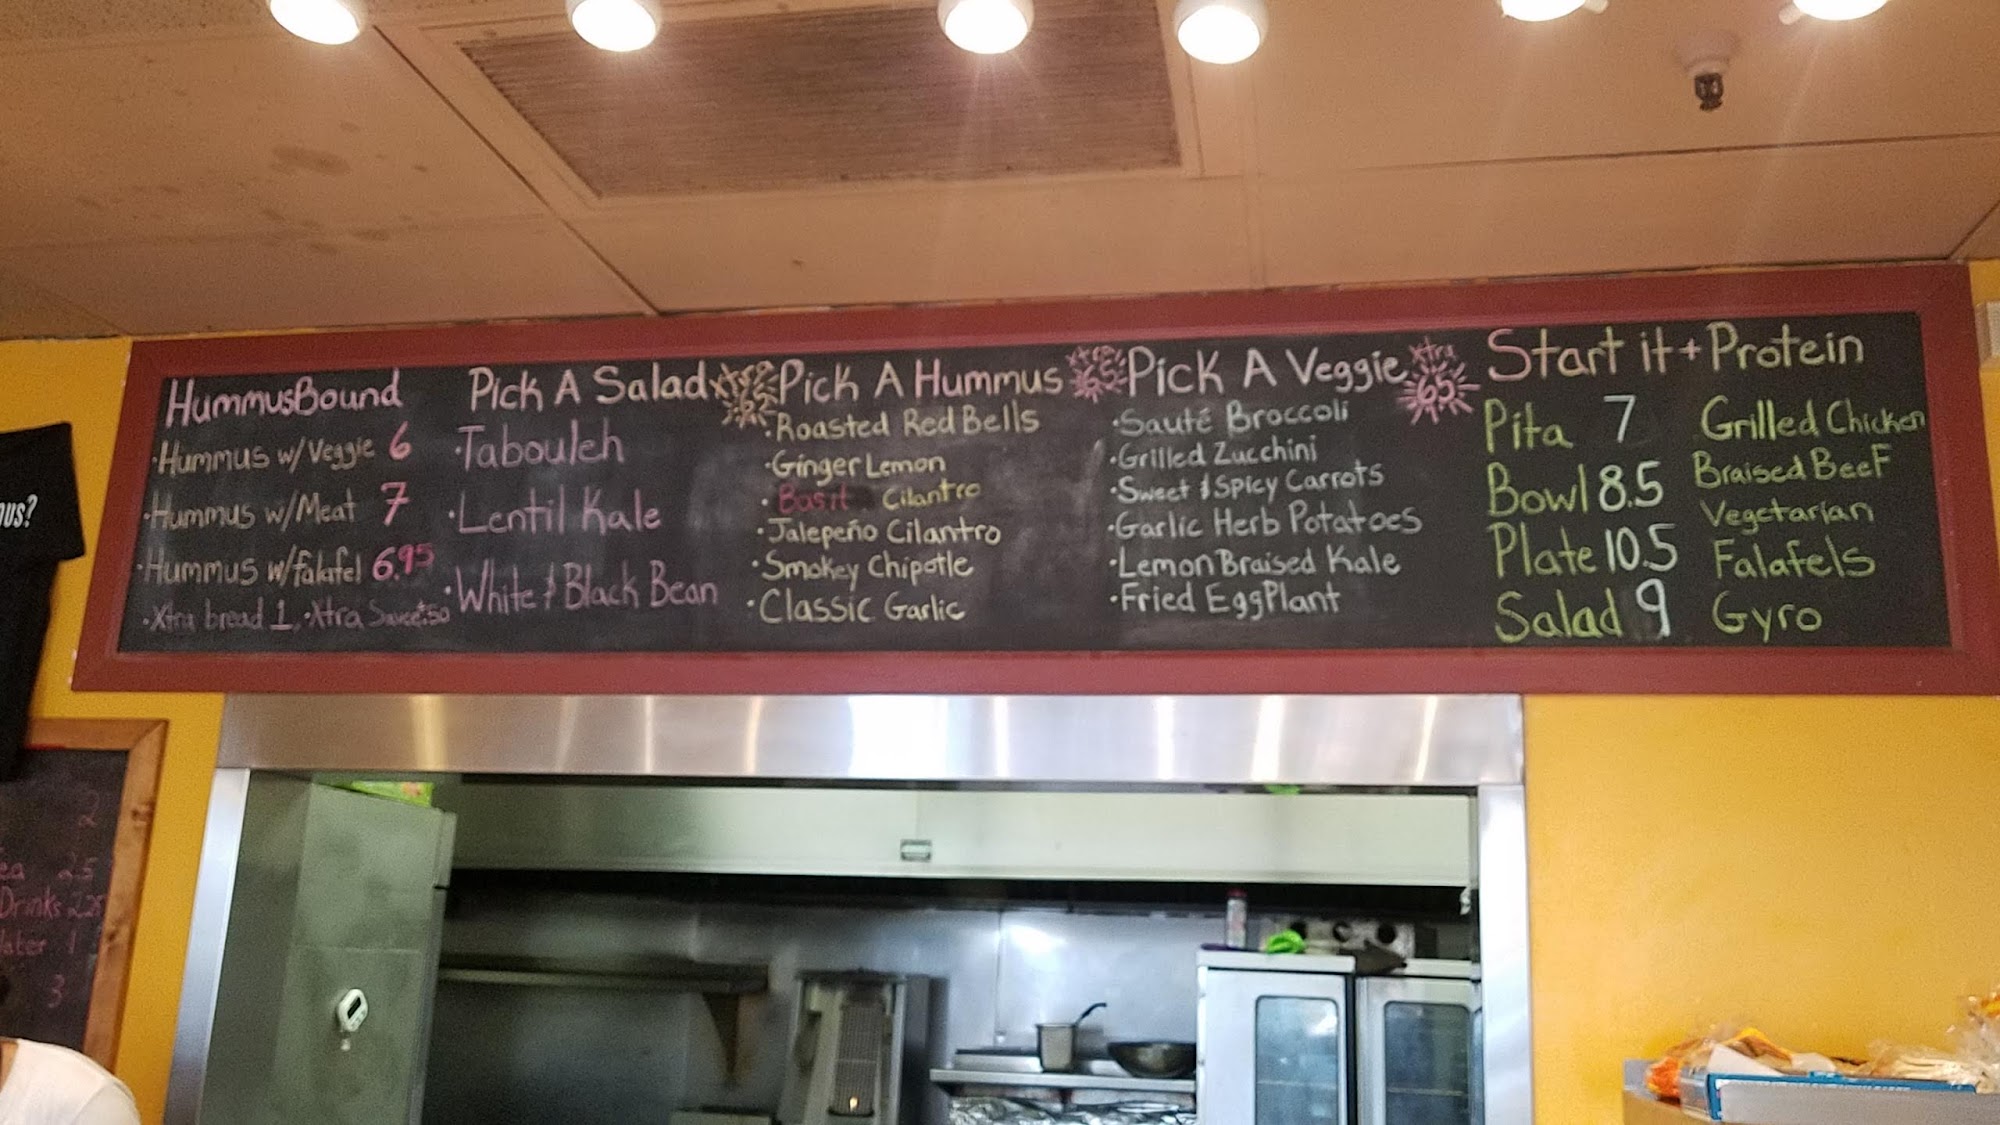 HummusBound
·Hummus w/Veggie 6
·Hummus w/Meat 7
·Hummus w/falafel 6.95
·Xtra bread 1, ·Xtra Sauce .50
Pick A Salad xtra
·Tabouleh
·Lentil Kale
·White & Black Bean
Pick A Hummus xtra .65
·Roasted Red Bells
·Ginger Lemon
·Basil Cilantro
·Jalepeño Cilantro
·Smokey Chipotle
·Classic Garlic
Pick A Veggie xtra .65
·Sauté Broccoli
·Grilled Zucchini
·Sweet & Spicy Carrots
·Garlic Herb Potatoes
·Lemon Braised Kale
·Fried EggPlant
Start it + Protein
Pita 7
Bowl 8.5
Plate 10.5
Salad 9
Grilled Chicken
Braised BeeF
Vegetarian
Falafels
Gyro
us?
2
ea 2.5
Drinks 2.25
ater 1
3